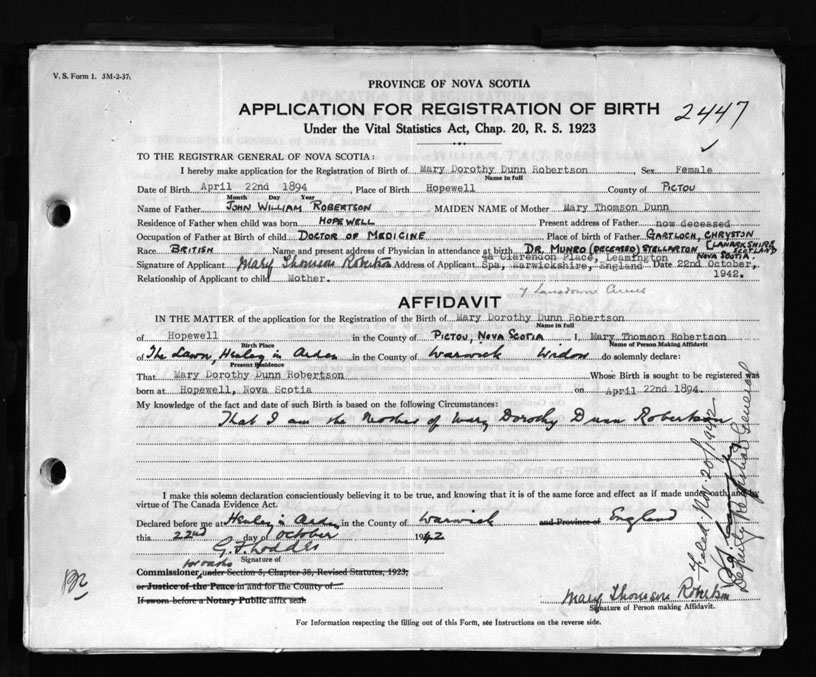 V. S. Form 1. 3M-2-37.
PROVINCE OF NOVA SCOTIA
APPLICATION FOR REGISTRATION OF BIRTH 2447
Under the Vital Statistics Act, Chap. 20, R. S. 1923
TO THE REGISTRAR GENERAL OF NOVA SCOTIA:
I hereby make application for the Registration of Birth of Mary Dorothy Dunn Robertson, Sex Female
Name in full
Date of Birth April 22nd 1894, Place of Birth Hopewell County of PICTOU
Month Day Year
Name of Father JOHN WILLIAM ROBERTSON MAIDEN NAME of Mother Mary Thomson Dunn
Residence of Father when child was born HOPEWELL Present address of Father now deceased
Occupation of Father at Birth of child DOCTOR OF MEDICINE Place of birth of Father GARTLOCH, CHRYSTON (LANARKSHIRE SCOTLAND
Race BRITISH Name and present address of Physician in attendance at birth DR. MUNRO (DECEASED) STELLARTON NOVA SCOTIA.
Signature of Applicant Mary Thomson Robertson Address of Applicant 4a Clarendon Place, Leamington Spa, Warwickshire, England Date 22nd October, 1942.
Relationship of Applicant to child Mother.
7 Lansdowne
AFFIDAVIT
IN THE MATTER of the application for the Registration of the Birth of Mary Dorothy Dunn Robertson
Name in full
of Hopewell in the County of PICTOU, NOVA SCOTIA I, Mary Thomson Robertson
Birth Place Name of Person Making Affidavit
of The Lawn, Henley in Arden in the County of Warwick Widow do solemnly declare:
Present Residence
That Mary Dorothy Dunn Robertson Whose Birth is sought to be registered was
born at Hopewell, Nova Scotia on April 22nd 1894.
My knowledge of the fact and date of such Birth is based on the following Circumstances:
That I am the Mother of Mary Dorothy Dunn Robertson
I make this solemn declaration conscientiously believing it to be true, and knowing that it is of the same force and effect as if made under oath, and by
virtue of The Canada Evidence Act.
Declared before me at Henley in Arden in the County of Warwick and Province of England
this 22nd day of October 1942
Signature of
Commissioner, under Section 5, Chapter 38, Revised Statutes, 1923,
or Justice of the Peace in and for the County of
If sworn before a Notary Public affix seal
Mary Thomson Robertson
Signature of Person making Affidavit.
For Information respecting the filling out of this Form, see Instructions on the reverse side.
Filed Nov. 20/1942
Deputy Registrar General